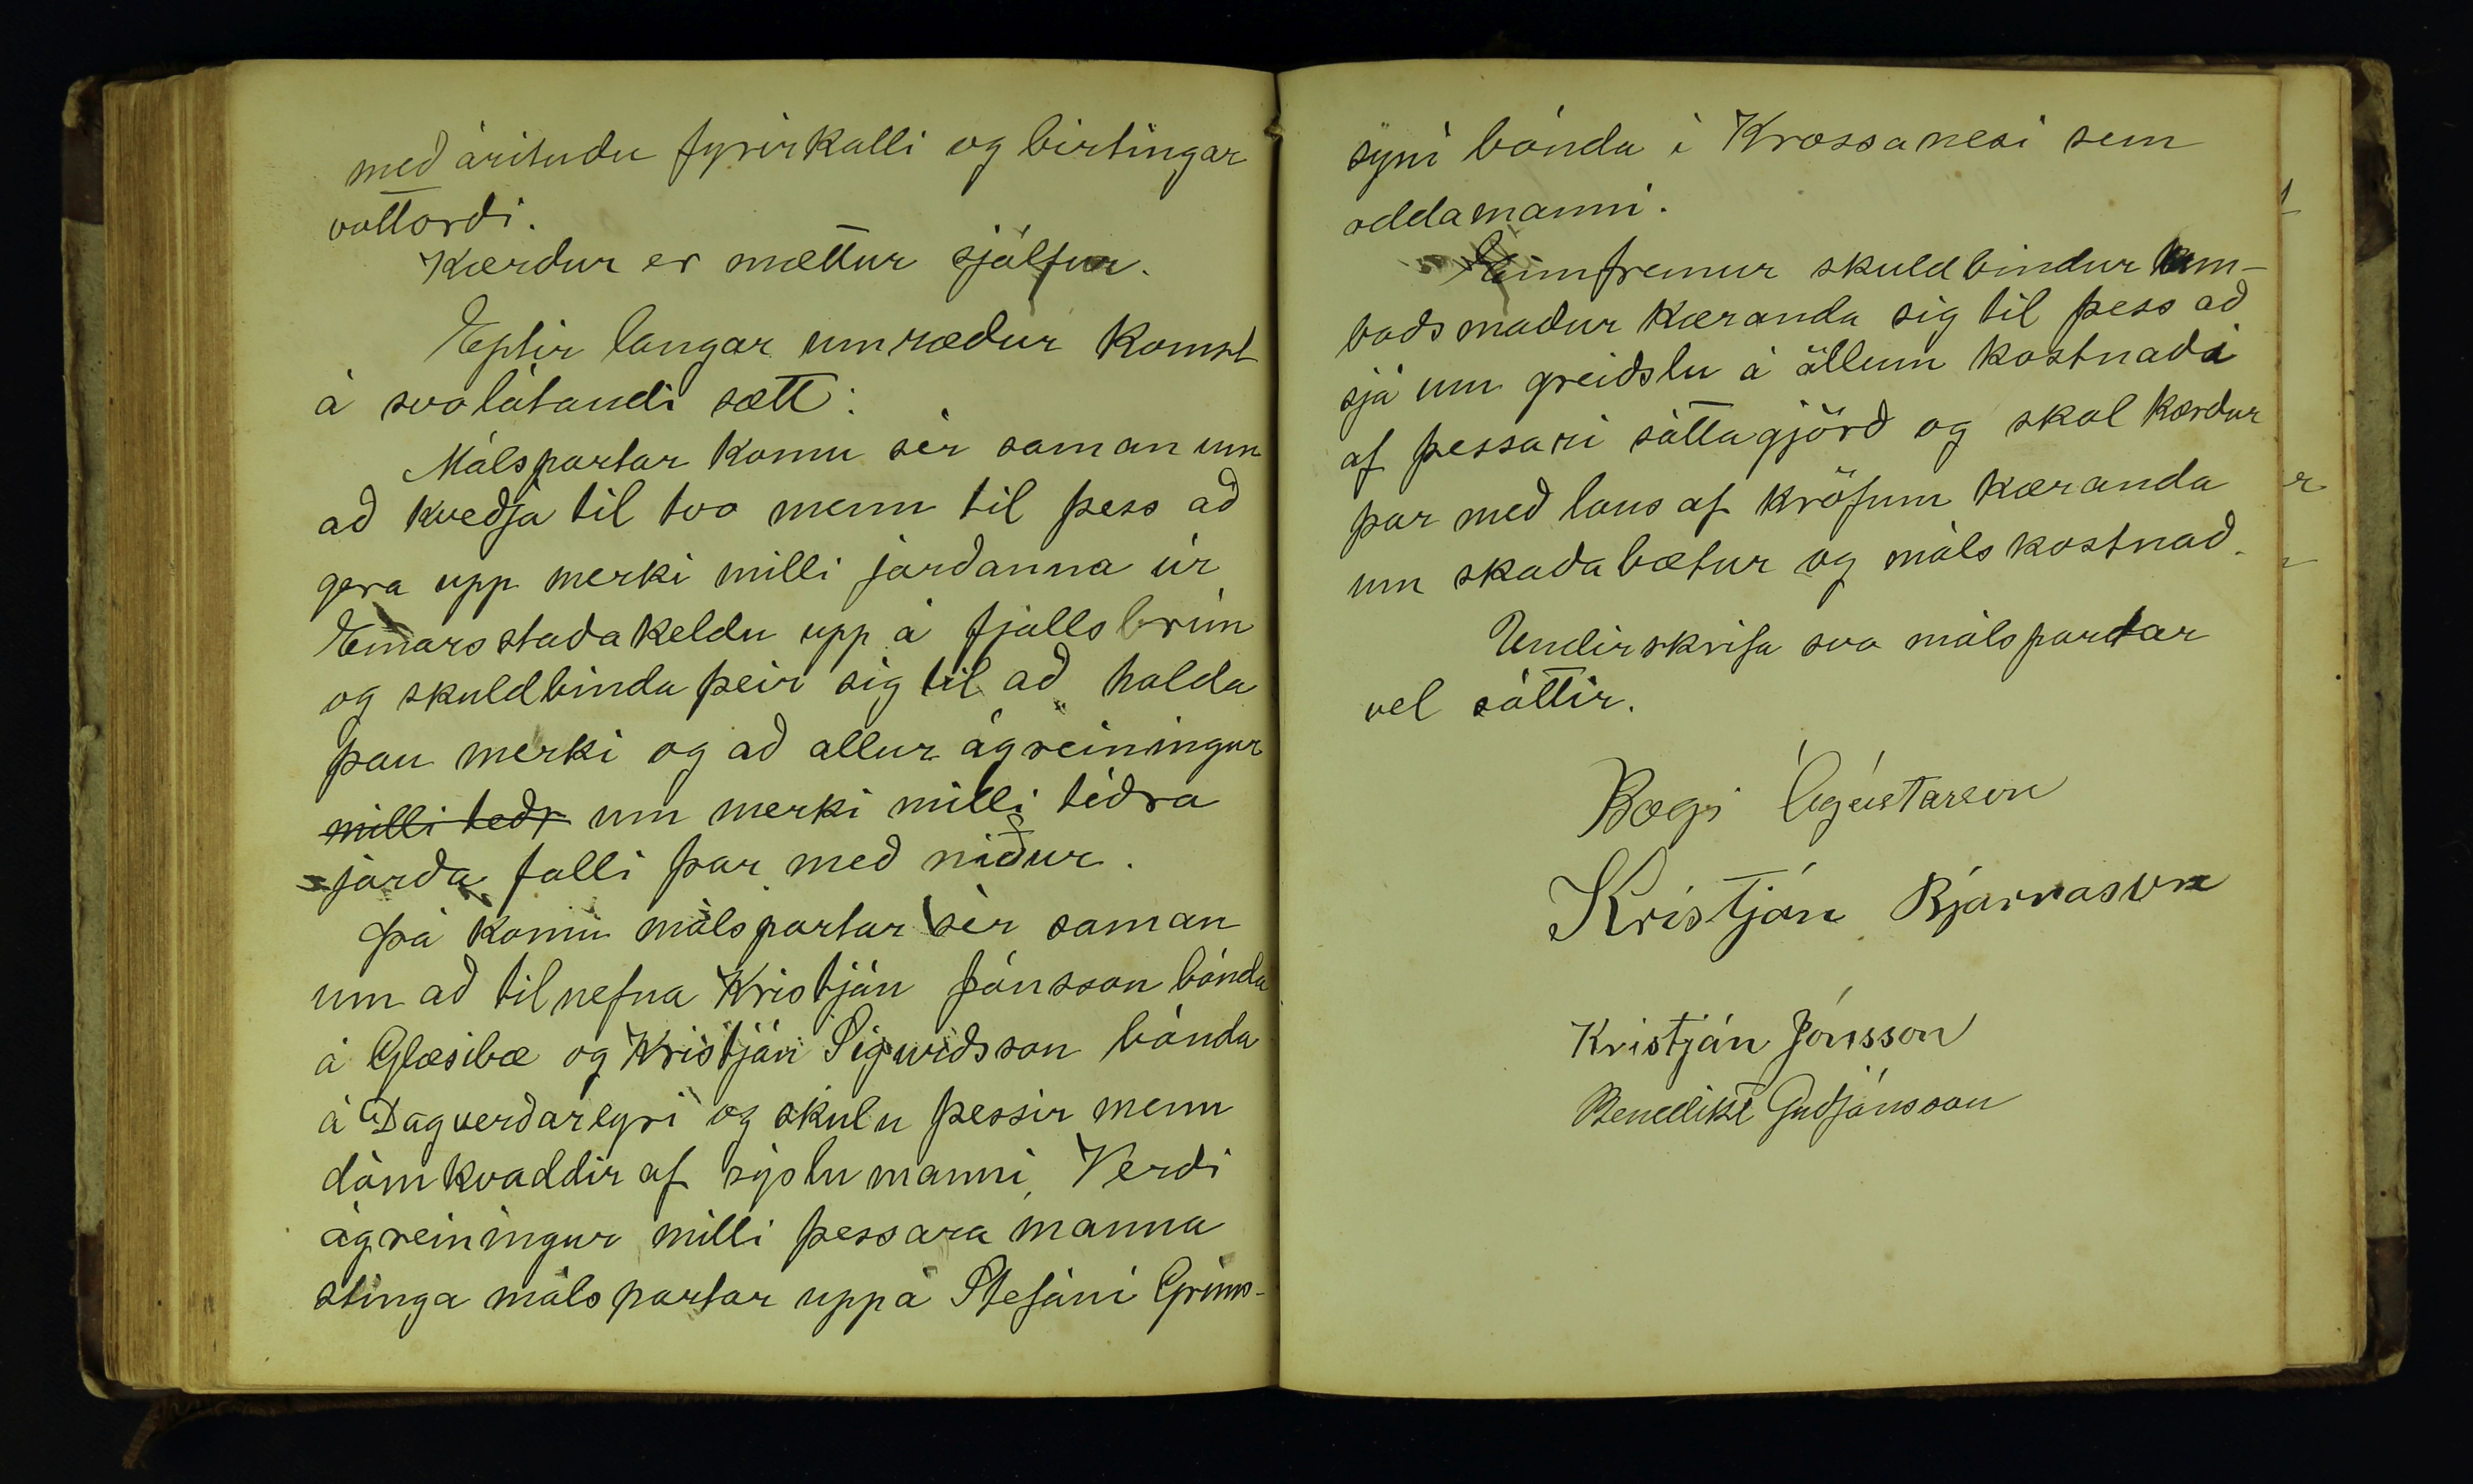 með árituðu fyrirkalli og birtingar
vottorði.
Kærður er mættur sjálfur.
Eptir langar umræður komst
á svolátandi sætt:
Málspartar komu sér saman um
að kveðja til tvo menn til þess að
gera upp merki milli jarðanna úr
Einarsstaðakeldu upp á fjallsbrún
og skuldbinda þeir sig til að halda
þau merki og að allur ágreiningur
milli teðr um merki milli téðra
jarða falli þar með niður.
Þá komu málspartar sér saman
um að tilnefna Kristján Jónsson bónda
á Glæsibæ og Kristján Sigurðsson bónda
á Dagverðareyri og skulu þessir menn
dómkvaddir af sýslumanni. Verði
ágreiningur milli þessara manna
stinga málspartar uppá Stefáni Gríms-
syni bónda í Krossanesi sem
oddamanni.
Ennfremur skuldbindur um-
boðsmaður kæranda sig til þess að
sjá um greiðslu á öllum kostnaði
af þessari sáttagjörð og skal kærður
þar með laus af kröfum kæranda
um skaðabætur og málskostnað.
Undirskrifa svo málspartar
vel sáttir.
Bogi Ágústsson
Kristján Bjarnason
Kristján Jónsson
Benedikt Guðjónsson